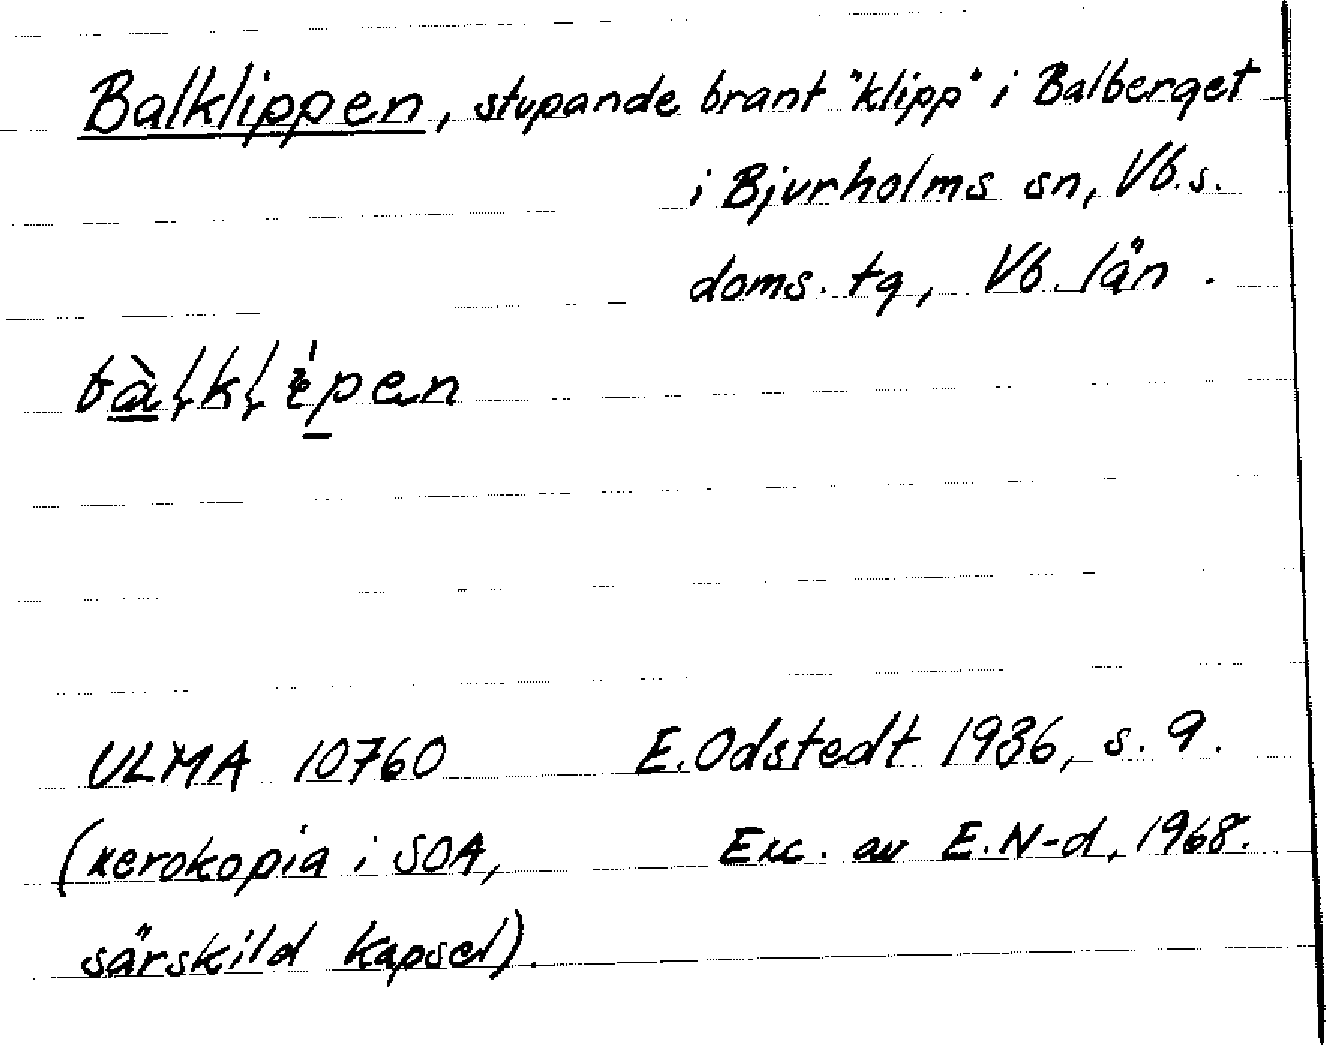 Balklippen, stupande brant "klipp" i Balberget
i Bjurholms sn, Vb.s.
doms. tg, Vb. län.
ULMA 10760 E. Odstedt 1936, s. 9.
(xerokopia i SOA, Exc. av E. N-d, 1968.
särskild kapsel).